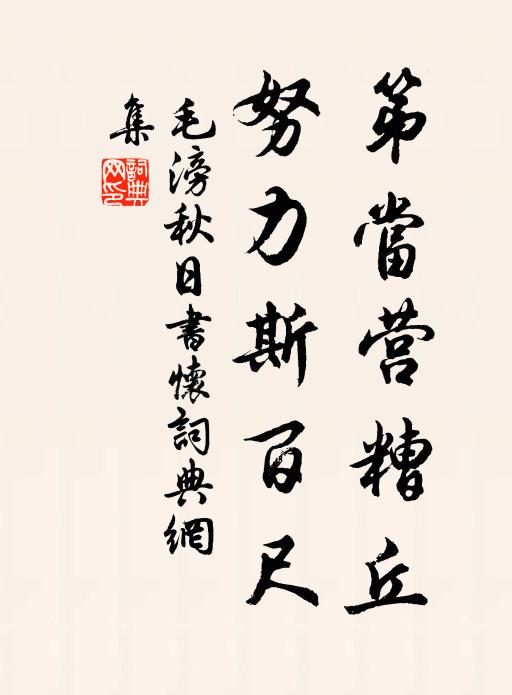 第當营糟丘
努力斯百尺
毛滂秋日書懷詞典網
集
詞典網印